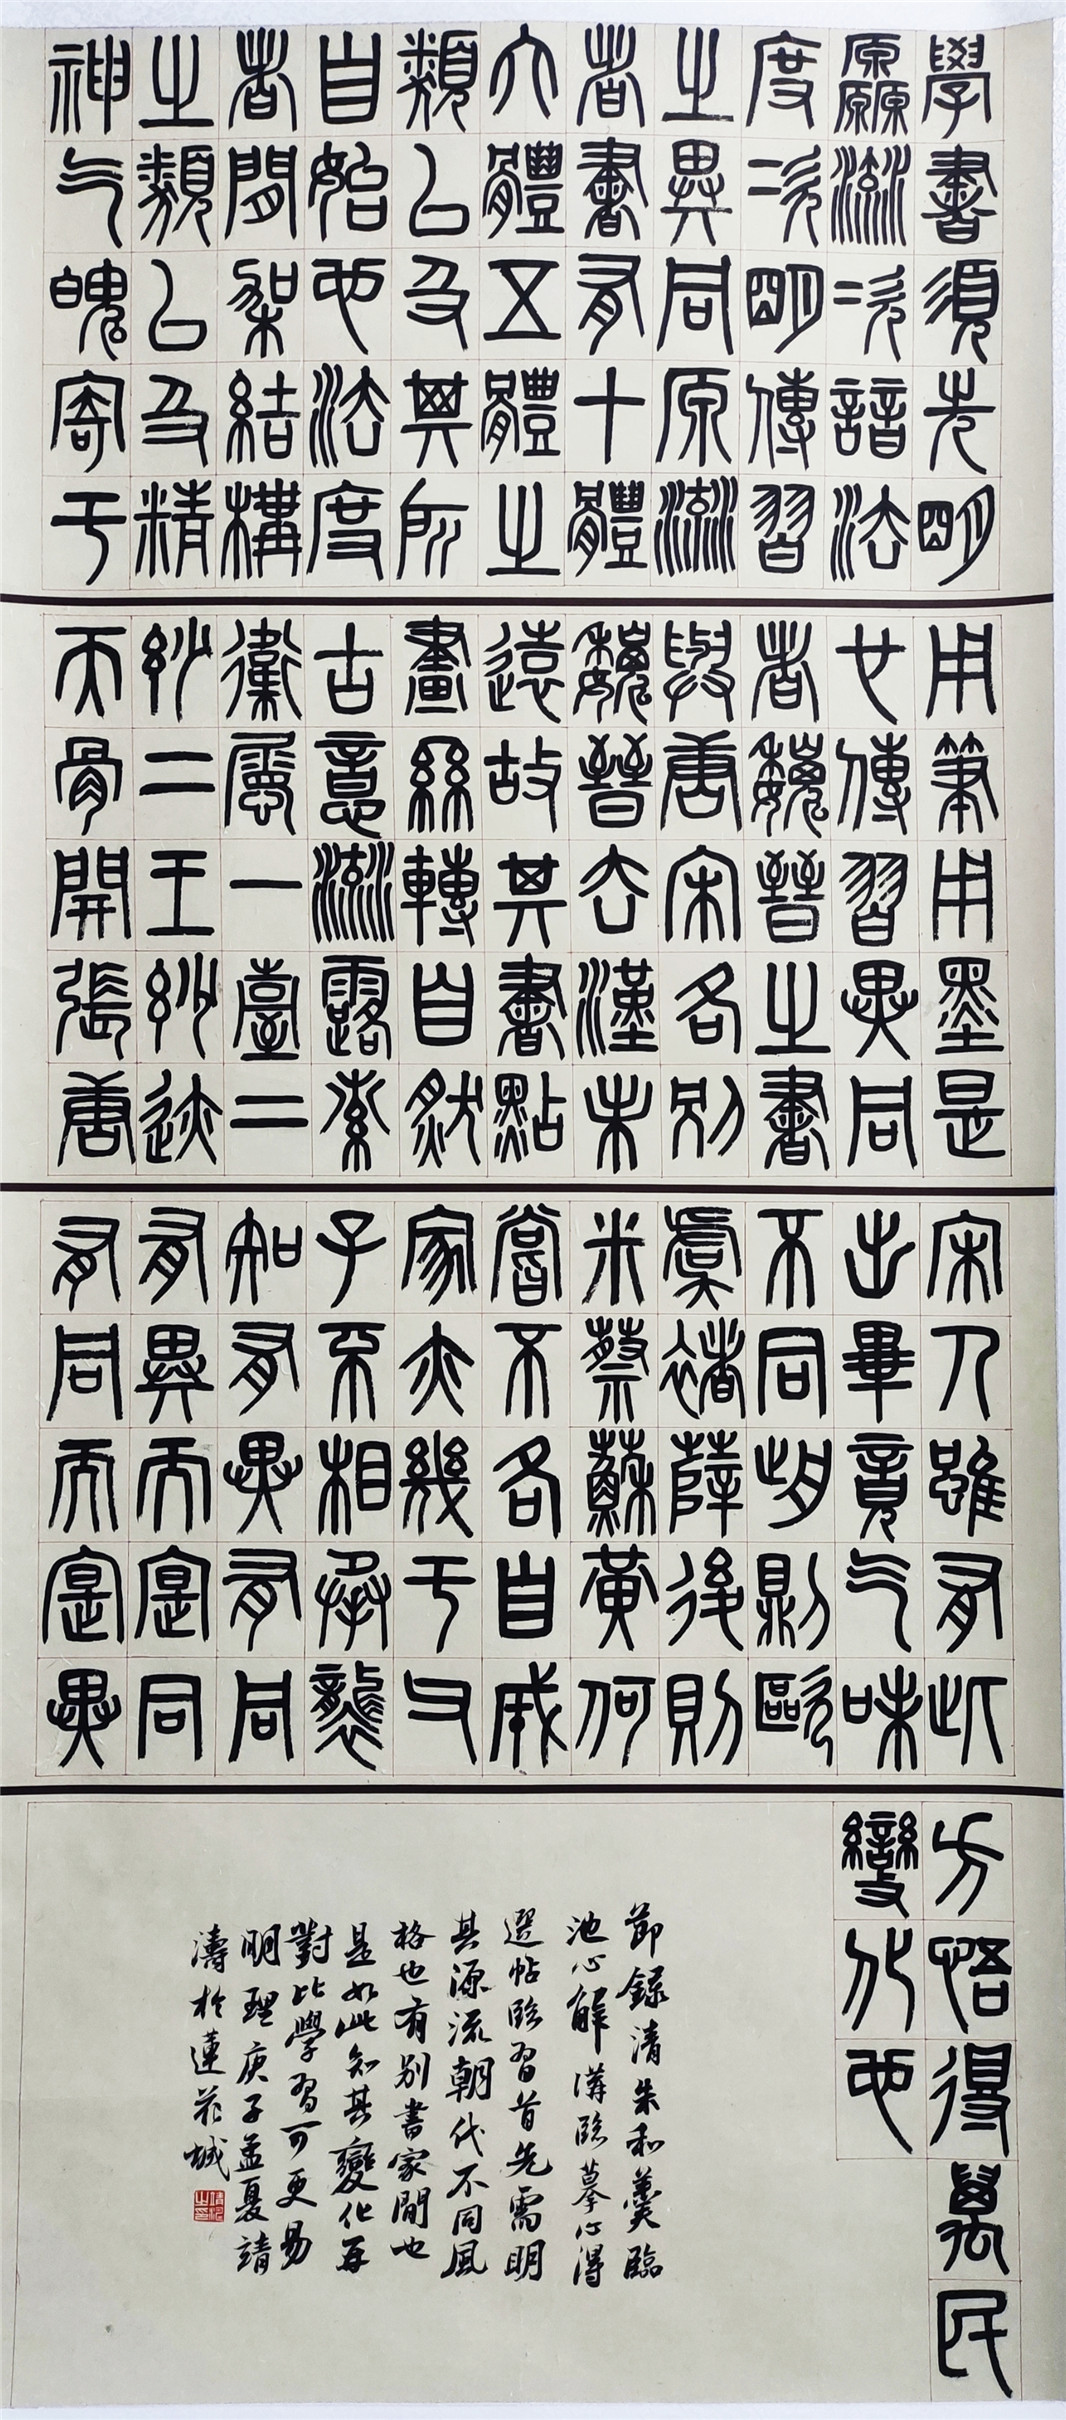 學書須先明
源流次諳法
度次明傳習
之異同原流
者書有十體
六體五體之
類以及其所
自始也法度
者間架結構
之類以及精
神氣魄寄于
用筆用墨是
也傳習異同
者魏晉之書
與唐宋各別
魏晉去漢未
遠故其書點
畫絲轉自然
古意流露索
衛屬一臺二
妙二王妙跡
天骨開張唐
宋人雖有此
出畢竟氣味
不同前則歐
虞褚薛後則
米蔡蘇黃何
嘗不各自成
家亦幾于父
子不相承襲
知有異有同
有異而實同
有同而實異
方悟得萬民
變化也
節錄清朱和羹臨
池心解講臨摹心得
選帖臨習首先需明
其源流朝代不同風
格也有別書家間也
是如此知其變化再
對比學習可更易
明理庚子孟夏靖
濤於蓮花城